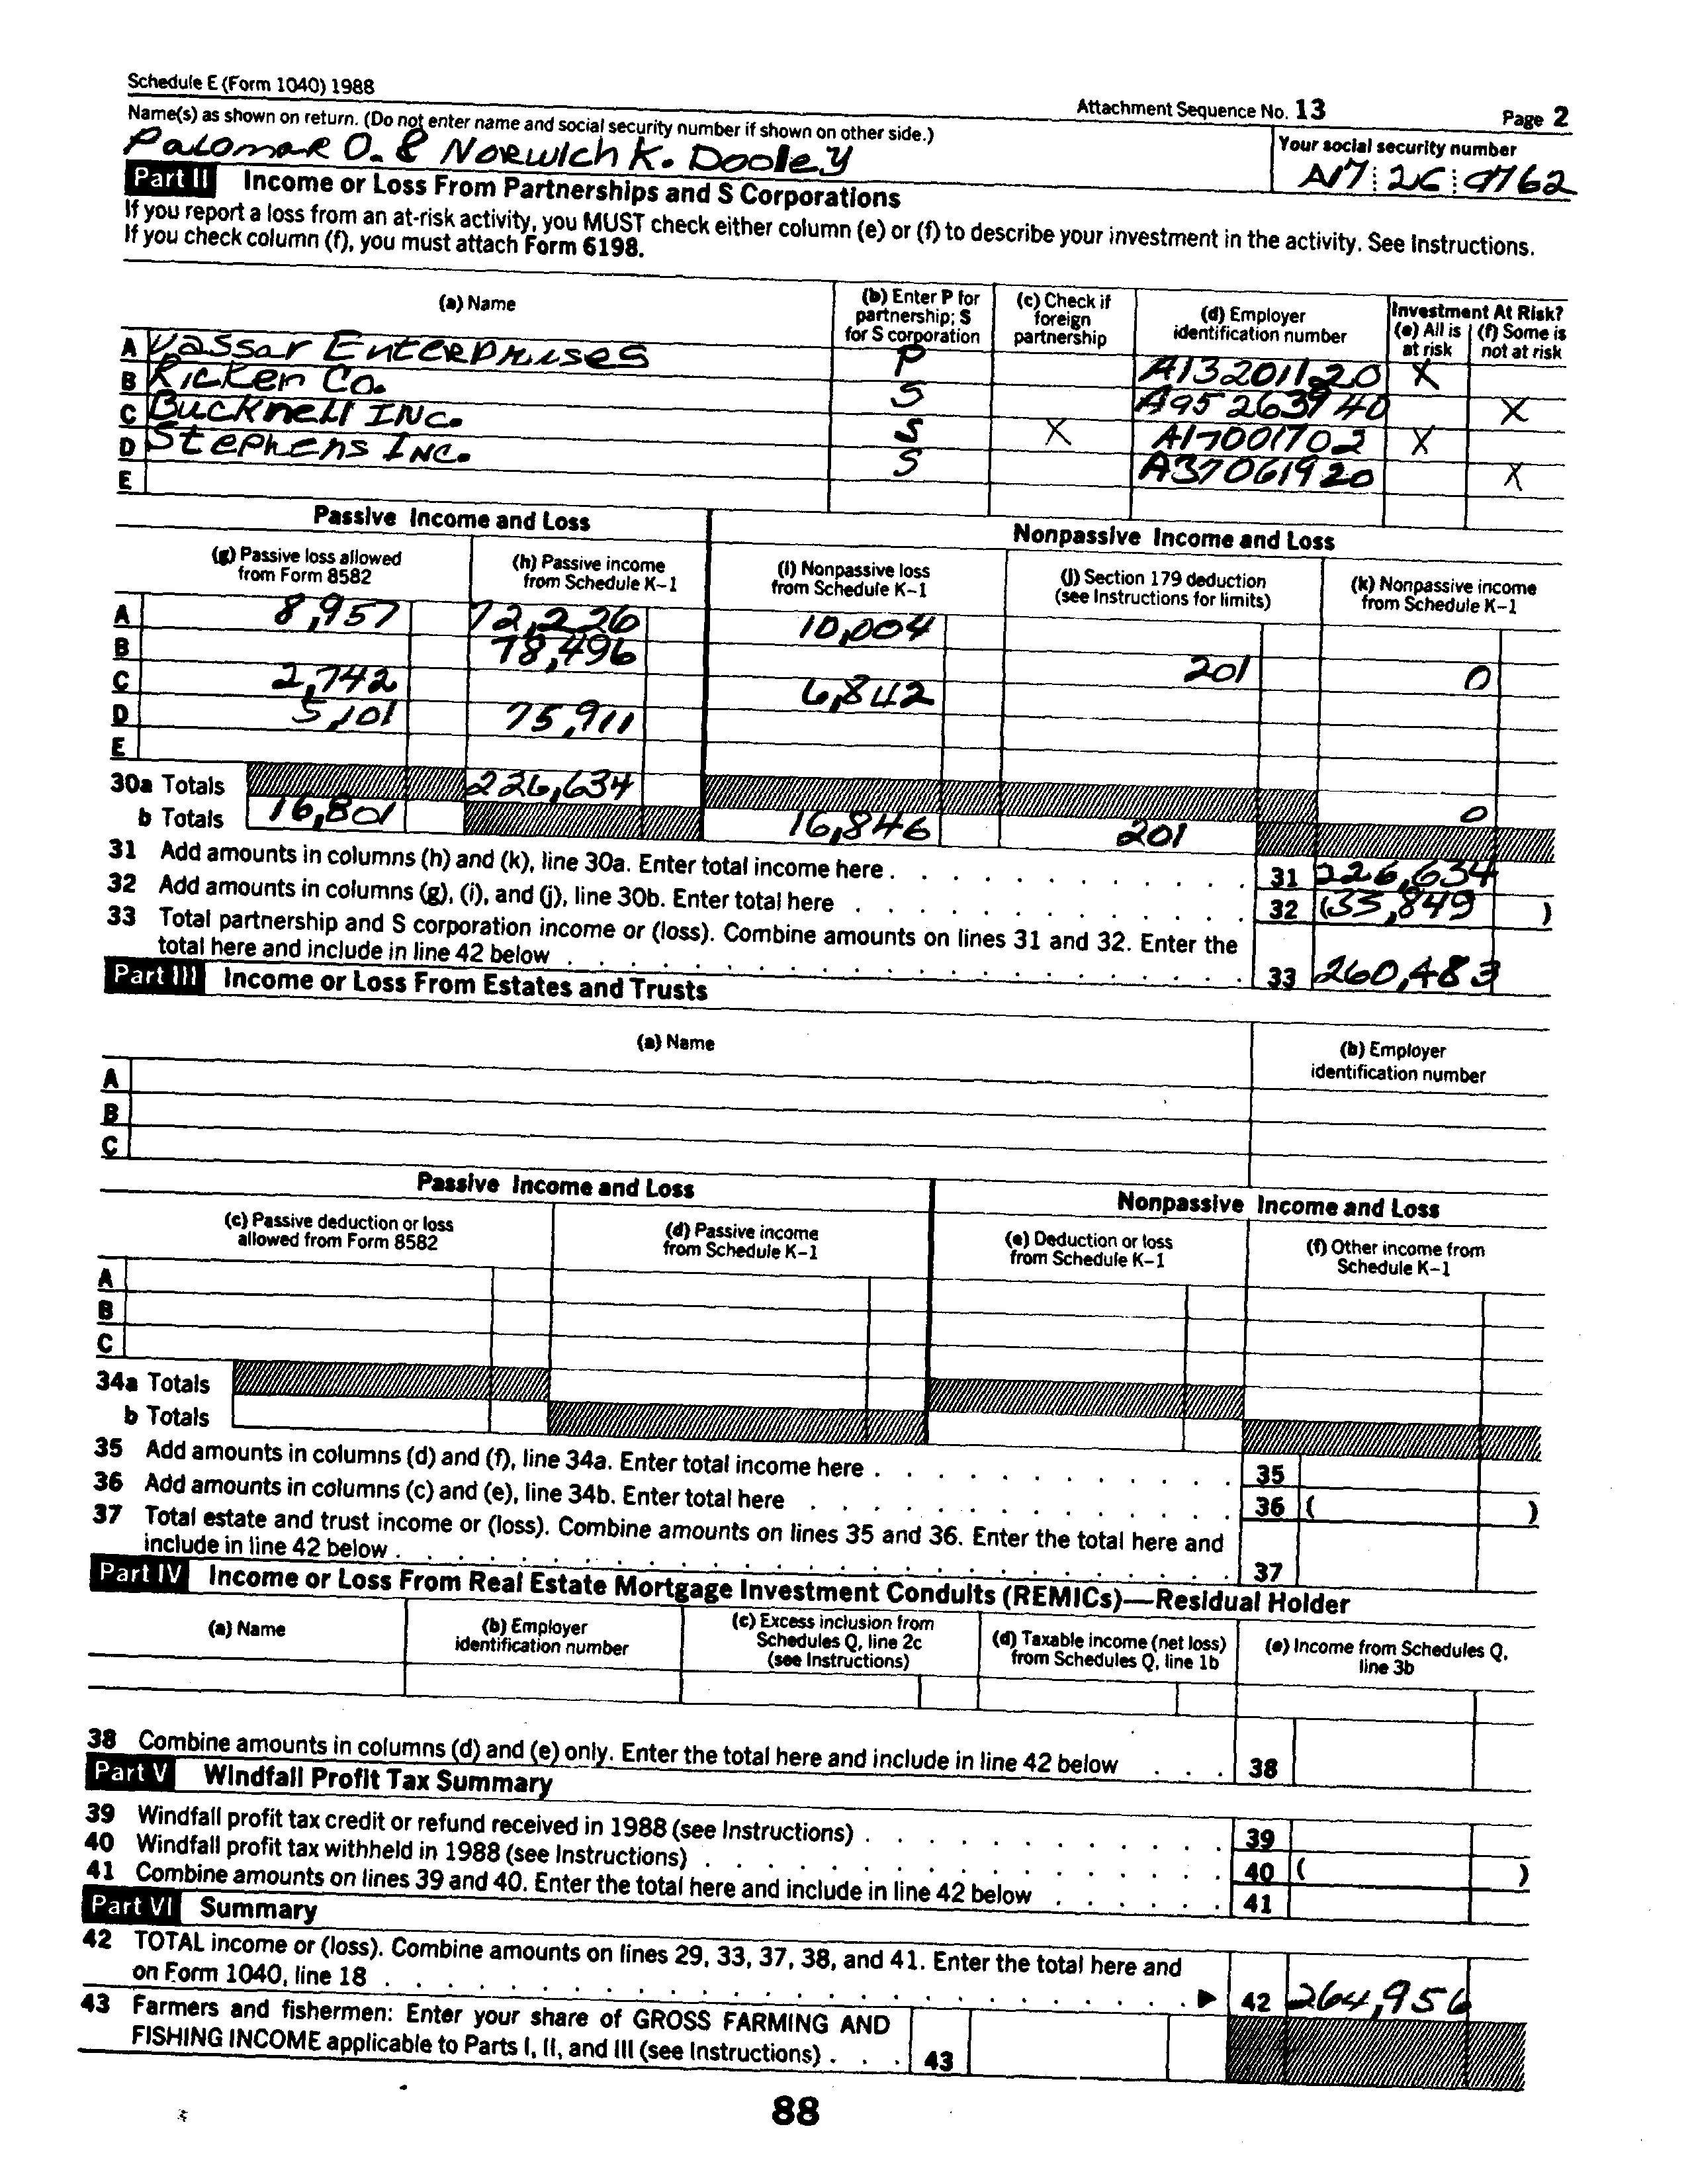 Schedule E (Form 1040) 1988
Attachment Sequence No. 13
Page 2
Name(s) as shown on return. (Do not enter name and social security number if shown on other side.)
Your social security number
Palomar O. & Norwich K. Dooley
Part II Income or Loss From Partnerships and S Corporations
If you report a loss from an at-risk activity, you MUST check either column (e) or (f) to describe your investment in the activity. See Instructions.
If you check column (f), you must attach Form 6198.
(a) Name
(b) Enter P for partnership; S for S corporation
(c) Check if foreign partnership
(d) Employer identification number
Investment At Risk?
(e) All is at risk
(f) Some is not at risk
A Vassar Enterprises P A13201120 X
B Ricker Co. S A95263940 X
C Bucknell Inc. S X A17001702 X
D Stephens Inc. S A37061920 X
E
Passive Income and Loss
Nonpassive Income and Loss
(g) Passive loss allowed from Form 8582
(h) Passive income from Schedule K-1
(i) Nonpassive loss from Schedule K-1
(j) Section 179 deduction (see Instructions for limits)
(k) Nonpassive income from Schedule K-1
A 8,957 72,226 10,004
B 78,496 201 0
C 2,742 6,842
D 5,101 75,911
E
30a Totals 226,634 0
b Totals 16,801 16,846 201
31 Add amounts in columns (h) and (k), line 30a. Enter total income here . 31 226,634
32 Add amounts in columns (g), (i), and (j), line 30b. Enter total here 32 (33,849 )
33 Total partnership and S corporation income or (loss). Combine amounts on lines 31 and 32. Enter the
total here and include in line 42 below 33 260,483
Part III Income or Loss From Estates and Trusts
(a) Name
(b) Employer identification number
A
B
C
Passive Income and Loss
Nonpassive Income and Loss
(c) Passive deduction or loss allowed from Form 8582
(d) Passive income from Schedule K-1
(e) Deduction or loss from Schedule K-1
(f) Other income from Schedule K-1
A
B
C
34a Totals
b Totals
35 Add amounts in columns (d) and (f), line 34a. Enter total income here . 35
36 Add amounts in columns (c) and (e), line 34b. Enter total here 36 ( )
37 Total estate and trust income or (loss). Combine amounts on lines 35 and 36. Enter the total here and
include in line 42 below . 37
Part IV Income or Loss From Real Estate Mortgage Investment Conduits (REMICs)—Residual Holder
(a) Name
(b) Employer identification number
(c) Excess inclusion from Schedules Q, line 2c (see Instructions)
(d) Taxable income (net loss) from Schedules Q, line 1b
(e) Income from Schedules Q, line 3b
38 Combine amounts in columns (d) and (e) only. Enter the total here and include in line 42 below 38
Part V Windfall Profit Tax Summary
39 Windfall profit tax credit or refund received in 1988 (see Instructions) . 39
40 Windfall profit tax withheld in 1988 (see Instructions) . 40 ( )
41 Combine amounts on lines 39 and 40. Enter the total here and include in line 42 below 41
Part VI Summary
42 TOTAL income or (loss). Combine amounts on lines 29, 33, 37, 38, and 41. Enter the total here and
on Form 1040, line 18 . 42 264,956
43 Farmers and fishermen: Enter your share of GROSS FARMING AND
FISHING INCOME applicable to Parts I, II, and III (see Instructions) . 43
88